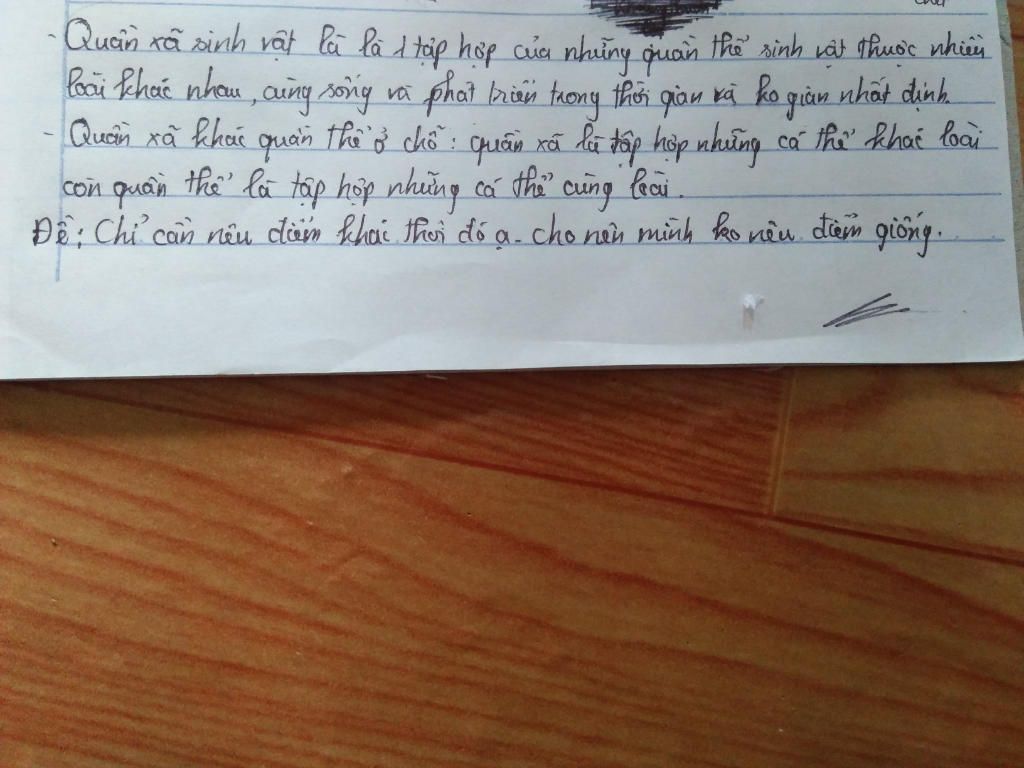 - Quần xã sinh vật là là 1 tập hợp của những quần thể sinh vật thuộc nhiều
loài khác nhau, cùng sống và phát triển trong thời gian và ko gian nhất định.
- Quần xã khác quần thể ở chỗ: quần xã là tập hợp những cá thể khác loài
còn quần thể là tập hợp những cá thể cùng loài.
Đề: Chỉ cần nêu điểm khác thôi đó ạ. cho nên mình ko nêu điểm giống.